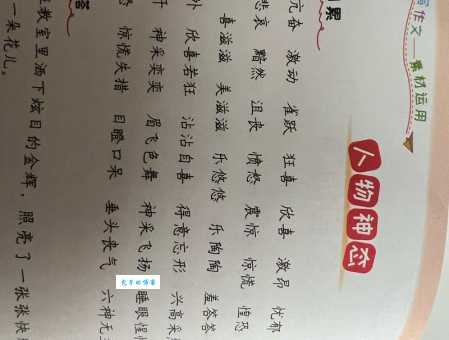 作文——素材运用
人物神态
累
亢奋 激动 雀跃 狂喜 欣喜 激昂 忧郁
悲哀 黯然 沮丧 愤怒 震惊 惊慌 惶恐
喜滋滋 美滋滋 乐悠悠 乐陶陶 羞答答
欣喜若狂 沾沾自喜 得意忘形 兴高采
神采奕奕 眉飞色舞 神采飞扬 睡眼惺忪
惊慌失措 目瞪口呆 垂头丧气 六神无主
教室里洒下炫目的金辉，照亮了一张张快
一朵花儿。